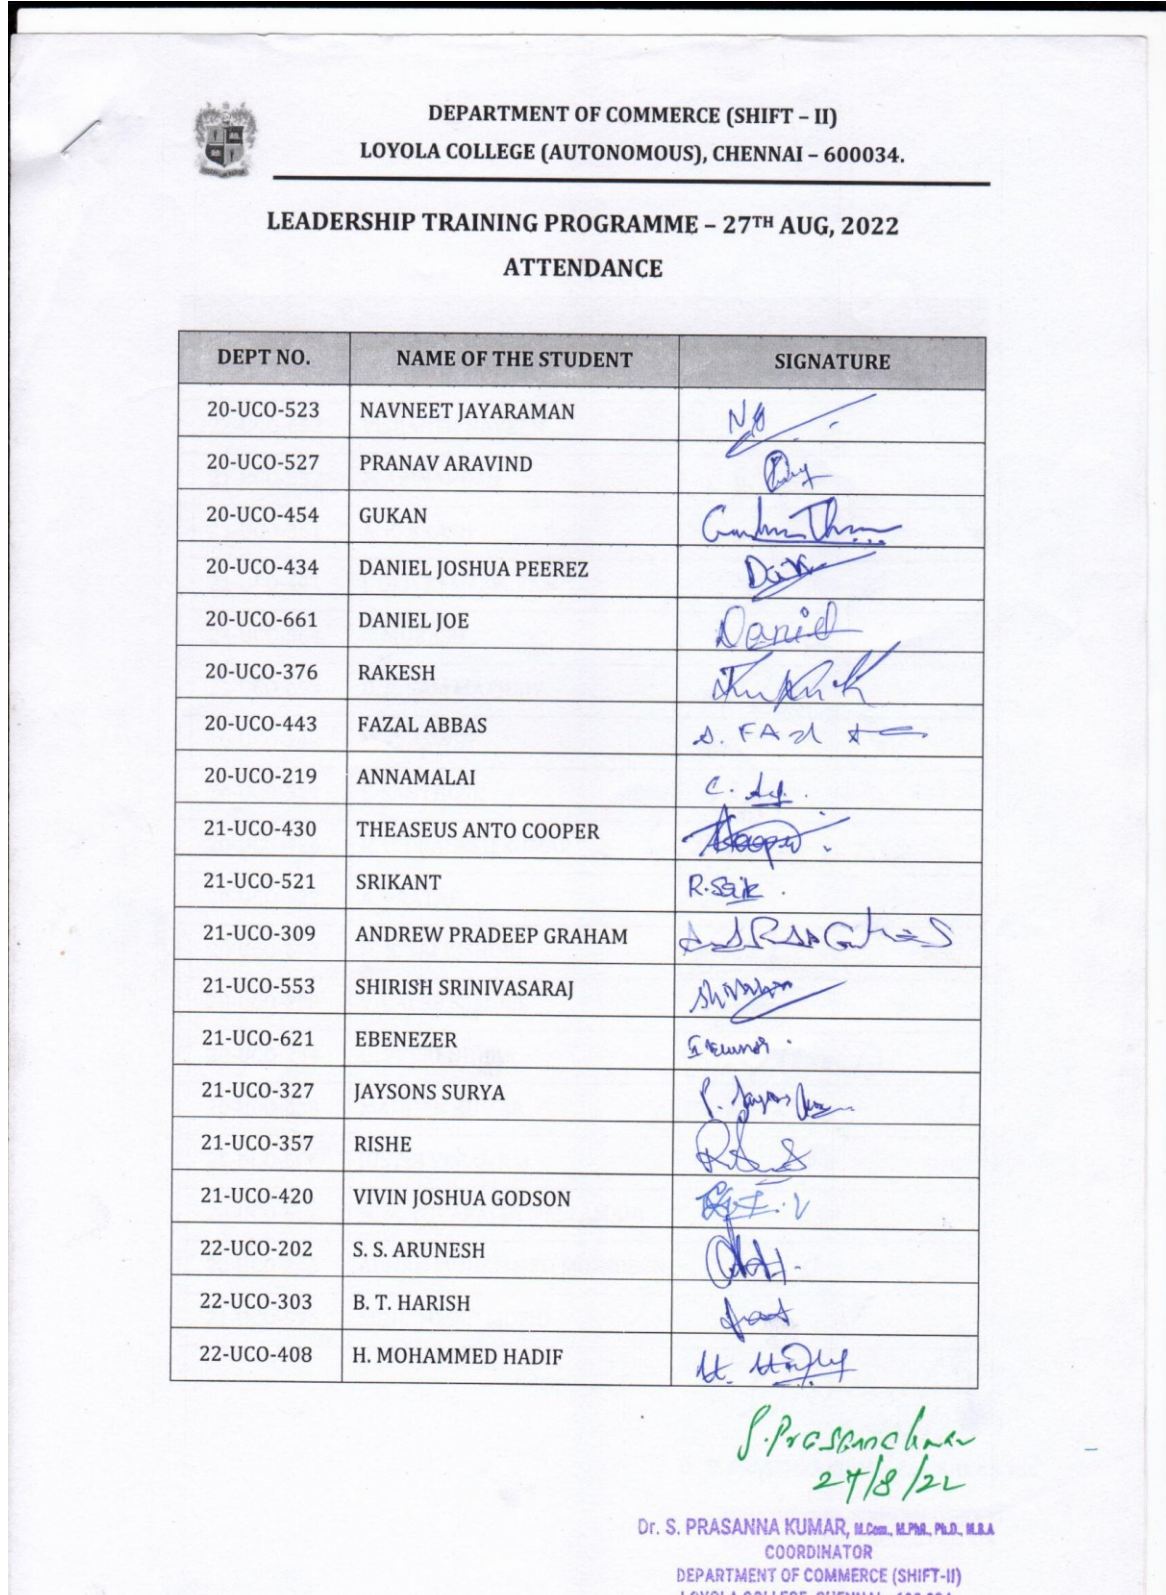 DEPARTMENT OF COMMERCE (SHIFT – II)
LOYOLA COLLEGE (AUTONOMOUS), CHENNAI – 600034.
LEADERSHIP TRAINING PROGRAMME – 27TH AUG, 2022
ATTENDANCE
DEPT NO. NAME OF THE STUDENT SIGNATURE
20-UCO-523 NAVNEET JAYARAMAN
20-UCO-527 PRANAV ARAVIND
20-UCO-454 GUKAN
20-UCO-434 DANIEL JOSHUA PEEREZ
20-UCO-661 DANIEL JOE Daniel
20-UCO-376 RAKESH
20-UCO-443 FAZAL ABBAS
20-UCO-219 ANNAMALAI
21-UCO-430 THEASEUS ANTO COOPER
21-UCO-521 SRIKANT
21-UCO-309 ANDREW PRADEEP GRAHAM
21-UCO-553 SHIRISH SRINIVASARAJ
21-UCO-621 EBENEZER
21-UCO-327 JAYSONS SURYA
21-UCO-357 RISHE
21-UCO-420 VIVIN JOSHUA GODSON
22-UCO-202 S. S. ARUNESH
22-UCO-303 B. T. HARISH
22-UCO-408 H. MOHAMMED HADIF
S. Prasanna Kumar
27/8/22
Dr. S. PRASANNA KUMAR, M.Com., M.Phil., Ph.D., M.B.A
COORDINATOR
DEPARTMENT OF COMMERCE (SHIFT-II)